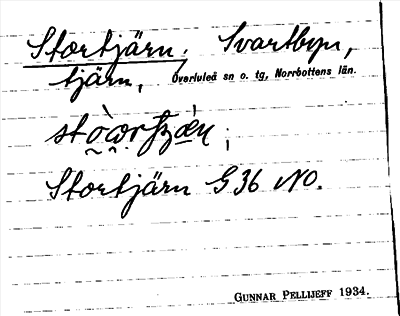 Stortjärn; Svartbyn,
tjärn, Överluleå sn o. tg, Norrbottens län.
Stortjärn G 36 NO.
GUNNAR PELLIJEFF 1934.